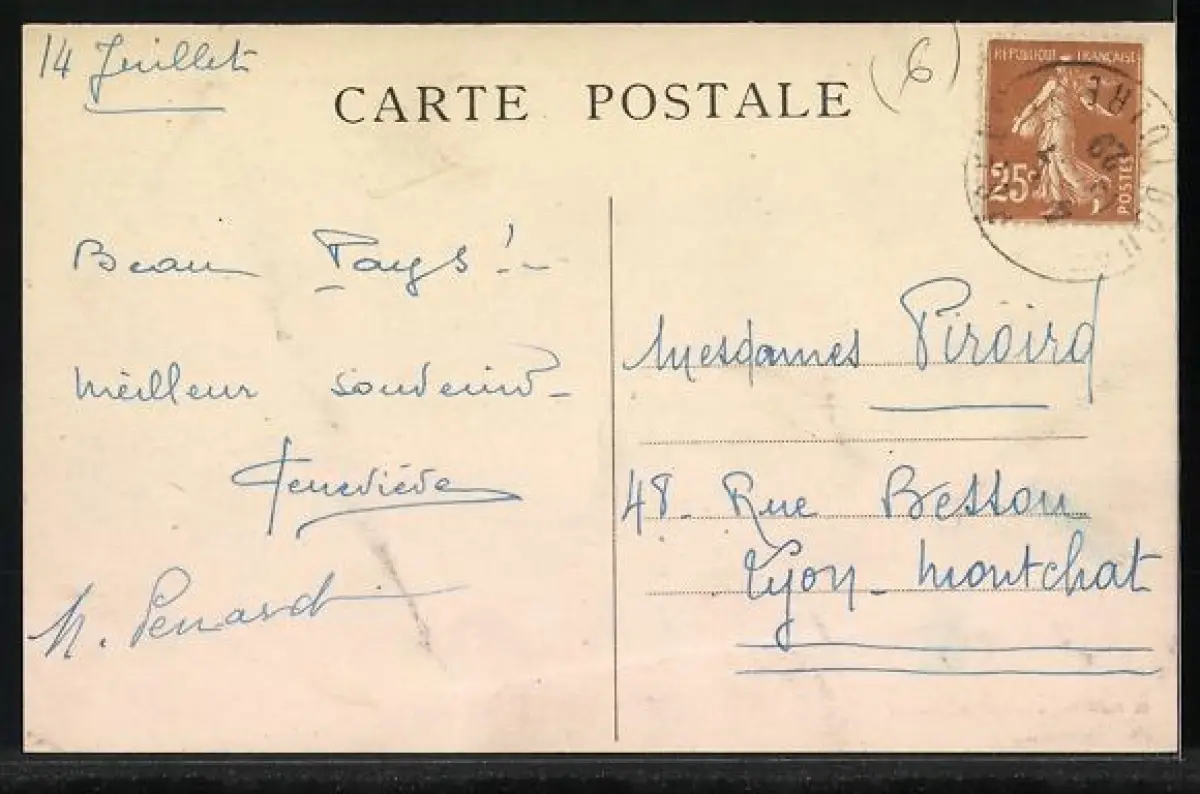 14 Juillet
CARTE POSTALE
(6)
REPUBLIQUE FRANÇAISE
25c
POSTES
Beau Pays !
meilleur souvenir
Geneviève
Mesdames Piroird
48 Rue Besson
Lyon-Montchat